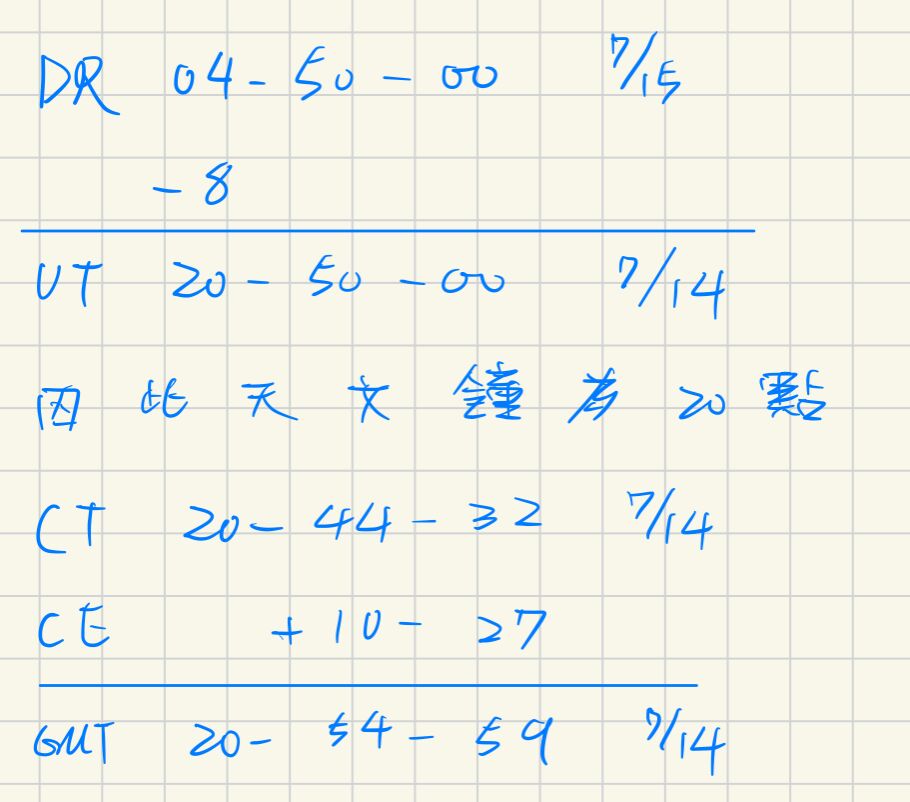 DR 04-50-00 7/15
-8
UT 20-50-00 7/14
因此天文鐘為20點
CT 20-44-32 7/14
CE +10-27
GMT 20-54-59 7/14